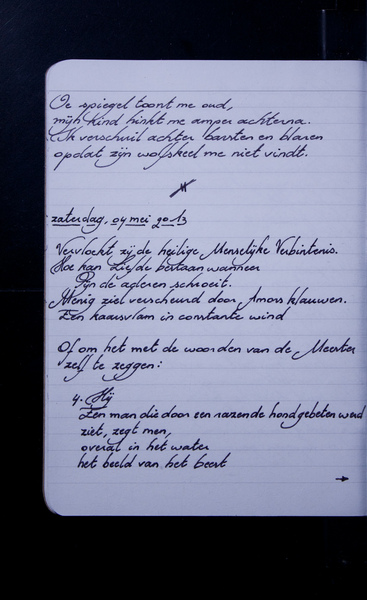 De spiegel toont me oud,
mijn kind hinkt me amper achterna.
Ik verschuil achter barsten en blaren
opdat zijn wolfskeel me niet vindt.
zaterdag, 04 mei 2013
Vervloekt zij de heilige Menselijke Verbintenis.
Hoe kan Liefde bestaan wanneer
Pijn de aderen schroeit.
Menig ziel verscheurd door Amors klauwen.
Een kaarsvlam in constante wind
Of om het met de woorden van de Meester
zelf te zeggen:
4. Hij
Een man die door een razende hond gebeten werd
ziet, zegt men,
overal in het water
het beeld van het beest
→